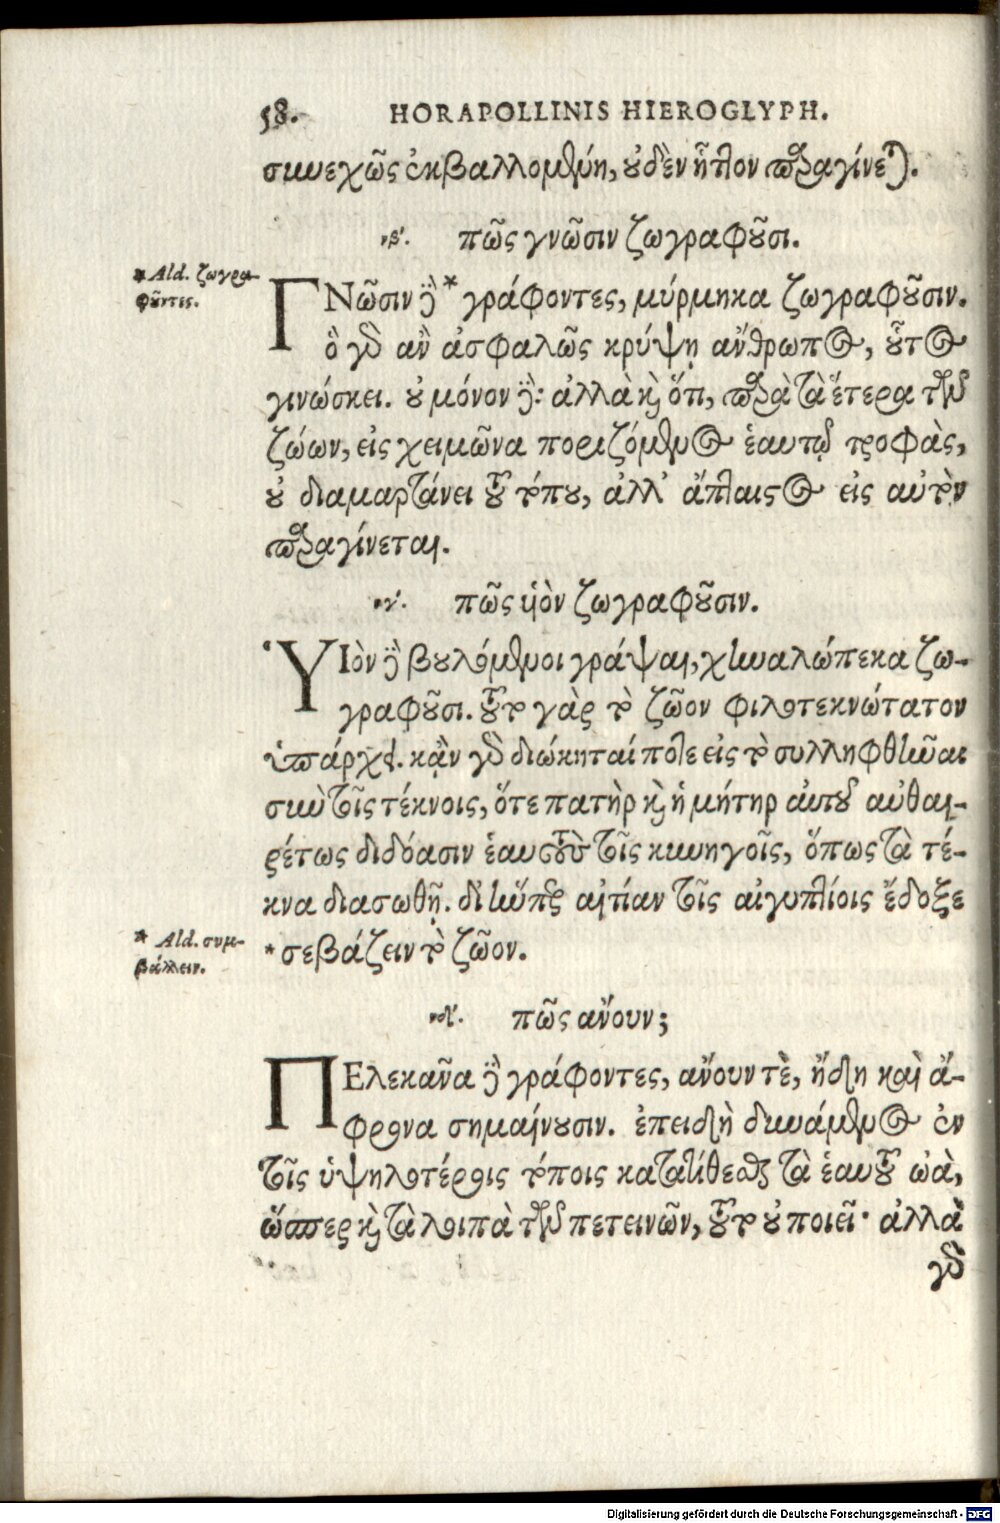 58. HORAPOLLINIS HIEROGLYPH.
συνεχῶς ἐκβαλλομένη, οὐδὲν ἧττον παραγίνεται.
νβʹ. πῶς γνῶσιν ζωγραφοῦσι.
* Ald. ζωγρα-
φοῦντες.
ΓΝῶσιν δὲ * γράφοντες, μύρμηκα ζωγραφοῦσιν.
ὃ γὰρ ἂν ἀσφαλῶς κρύψῃ ἄνθρωπος, οὗτος
γινώσκει. οὐ μόνον δὲ: ἀλλὰ καὶ ὅτι, παρὰ τὰ ἕτερα τῶν
ζώων, εἰς χειμῶνα ποριζόμενος ἑαυτῷ τροφὰς,
οὐ διαμαρτάνει τοῦ τόπου, ἀλλ' ἄπταιστος εἰς αὐτὸν
παραγίνεται.
νγʹ. πῶς υἱὸν ζωγραφοῦσιν.
ὙΙὸν δὲ βουλόμενοι γράψαι, χηναλώπεκα ζω-
γραφοῦσι. τοῦτο γὰρ τὸ ζῶον φιλοτεκνώτατον
ὑπάρχει. κἂν γὰρ διώκηταί ποτε εἰς τὸ συλληφθῆναι
σὺν τοῖς τέκνοις, ὅτε πατὴρ καὶ ἡ μήτηρ αὐτοῦ αὐθαι-
ρέτως διδόασιν ἑαυτοὺς τοῖς κυνηγοῖς, ὅπως τὰ τέ-
κνα διασωθῇ. δι' ἥνπερ αἰτίαν τοῖς αἰγυπτίοις ἔδοξε
* Ald. συμ-
βάλλειν.
* σεβάζειν τὸ ζῶον.
νδʹ. πῶς ἄνουν;
ΠΕλεκᾶνα δὲ γράφοντες, ἄνουν τὲ, ἤδη καὶ ἄ-
φρονα σημαίνουσιν. ἐπειδὴ δυνάμενος ἐν
τοῖς ὑψηλοτέροις τόποις κατατίθεσθαι τὰ ἑαυτοῦ ὠὰ,
ὥσπερ καὶ τὰ λοιπὰ τῶν πετεινῶν, τοῦτο οὐ ποιεῖ· ἀλλὰ
γὰρ
Digitalisierung gefördert durch die Deutsche Forschungsgemeinschaft - DFG